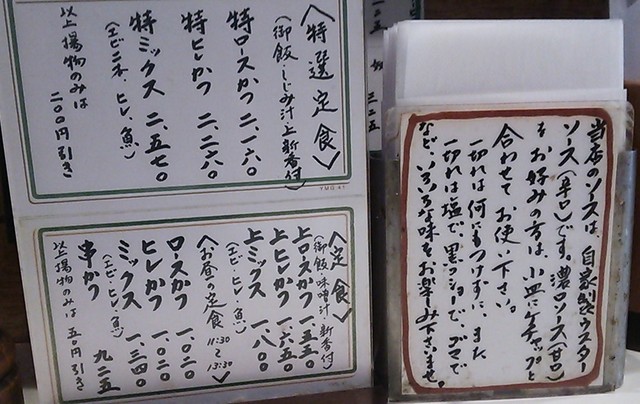 〈特選定食〉
(御飯・しじみ汁上新香付)
特ロースかつ 二、一六〇
特ヒレかつ 二、二六〇
特ミックス 二、五七〇
(エビ二ネ、ヒレ、魚)
以上揚物のみは
二〇〇円引き
YMO-41
〈定食〉
(御飯味噌汁、新香付)
上ロースかつ 一、五三〇
上ヒレかつ 一、六五〇
上ミックス 一、八〇〇
(エビ・ヒレ、魚)
〈お昼の定食 11:30〜13:30〉
ロースかつ 一、〇二〇
ヒレかつ 一、〇二〇
ミックス 一、三四〇
(エビ、ヒレ、魚)
串かつ 九二五
以上揚物のみは 五〇円引き
当店のソースは、自家製ウスター
ソース(辛口)です。濃口ソース(甘口)
をお好みの方は、小皿にケチャップと
合わせてお使い下さい。
一切れは何にもつけずに、また
一切れは塩で、黒コショーで、ゴマで
など、いろいろな味をお楽しみ下さいませ。